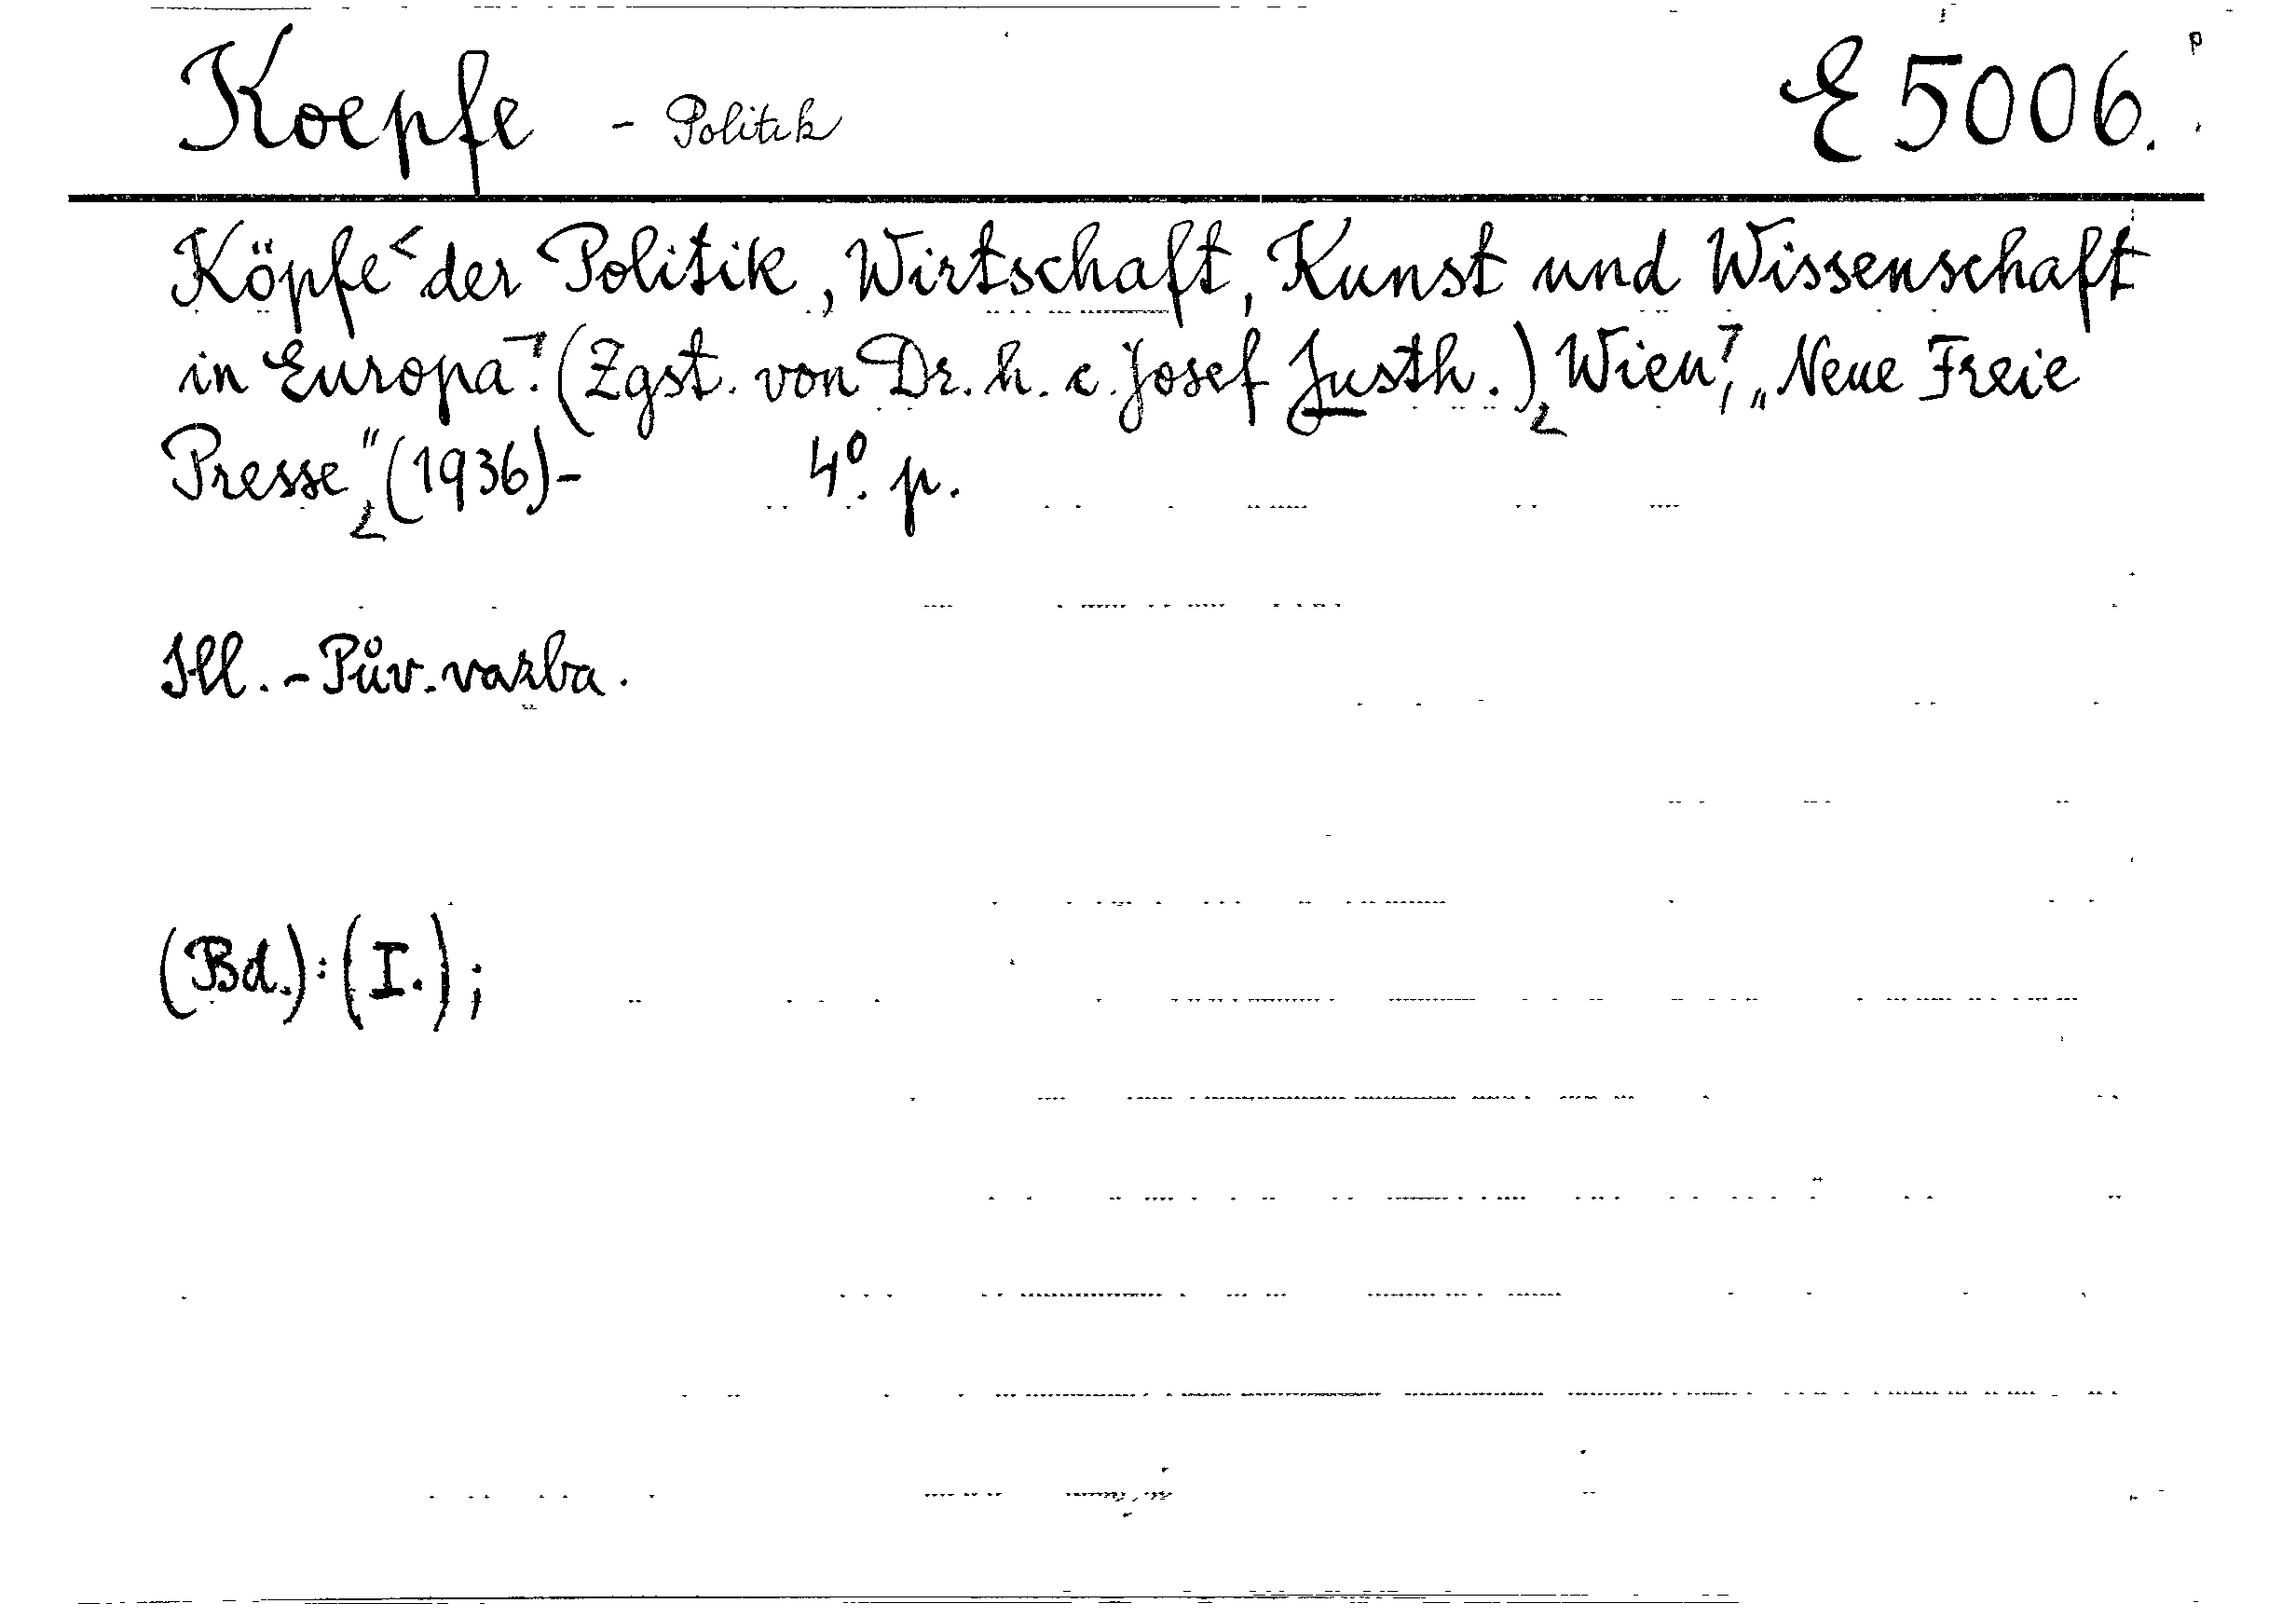 Koepfe - Politik E 5006.
Köpfe der Politik, Wirtschaft, Kunst und Wissenschaft
in Europa. (Zgst. von Dr. h. c. Josef Justh.) Wien, „Neue Freie
Presse" (1936)- 4°. p.
Ill. - Pův. vazba.
(Bd.): (I.);